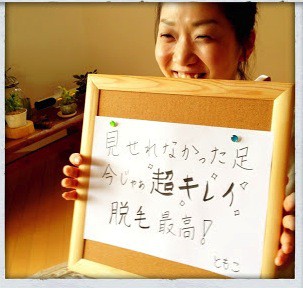 見せれなかった足
今じゃあ超キレイ
脱毛最高!
ともこ